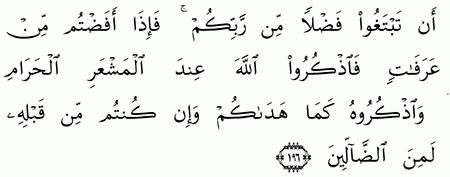 أَن تَبْتَغُوا۟ فَضْلًا مِّن رَّبِّكُمْ ۚ فَإِذَآ أَفَضْتُم مِّنْ
عَرَفَٰتٍ فَٱذْكُرُوا۟ ٱللَّهَ عِندَ ٱلْمَشْعَرِ ٱلْحَرَامِ
وَٱذْكُرُوهُ كَمَا هَدَىٰكُمْ وَإِن كُنتُم مِّن قَبْلِهِۦ
لَمِنَ ٱلضَّآلِّينَ ﴿١٩٦﴾